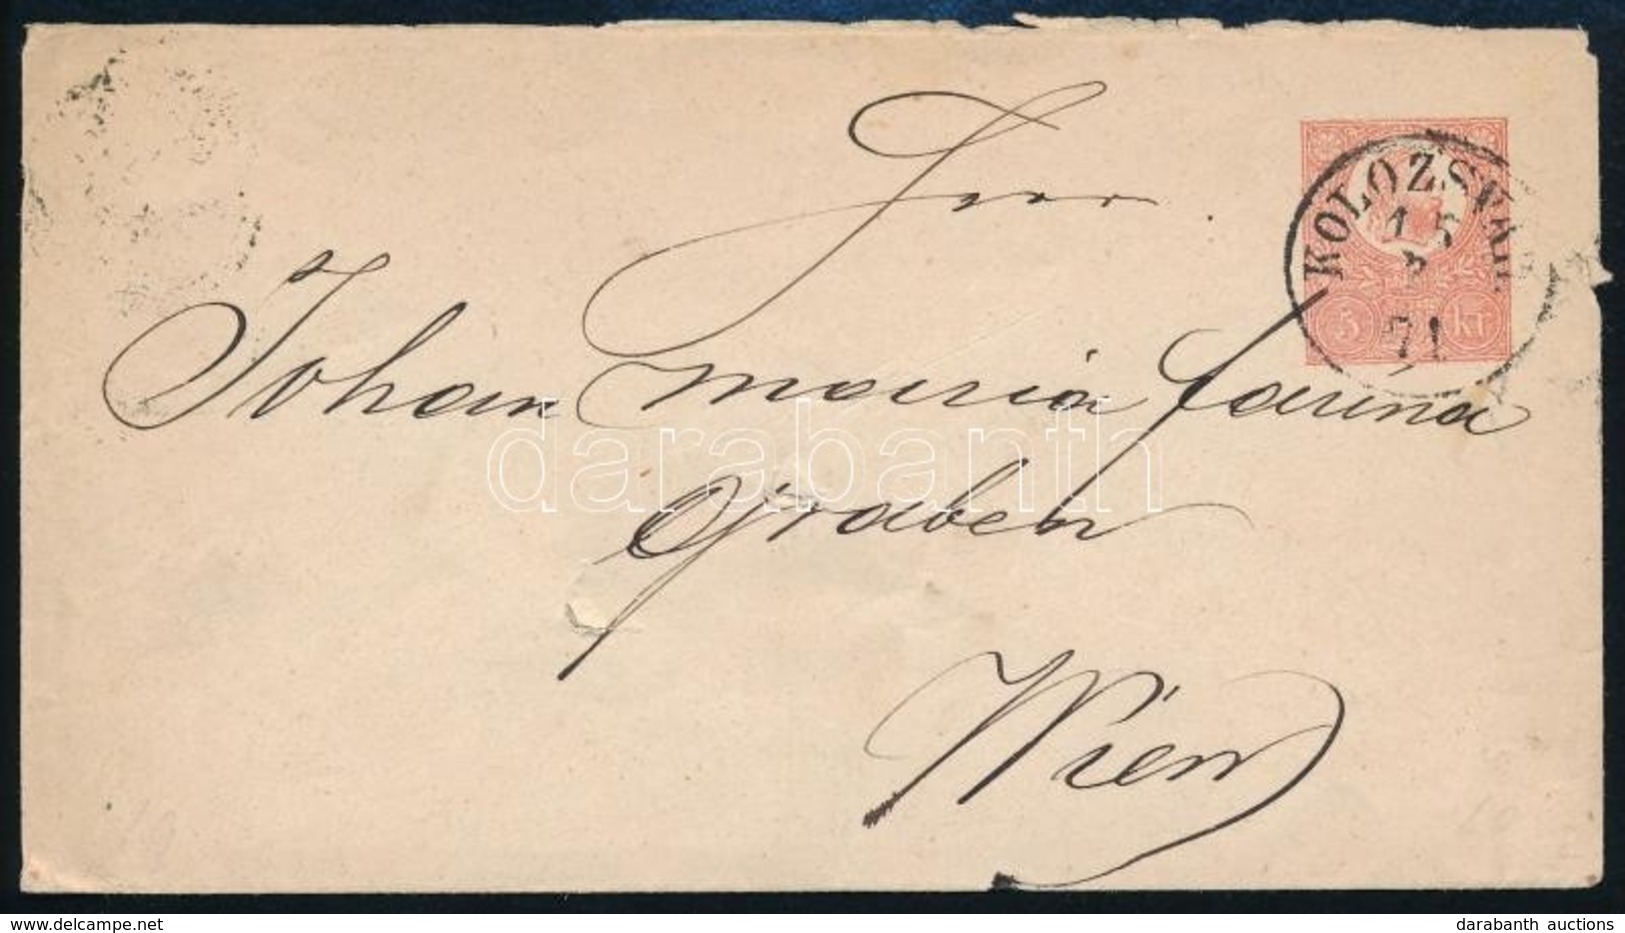 Herr.
KOLOZSVÁR
15
71
5 kr
Johan Maria Farina
darabanth
Graben
Wien
delcampe.net
darabanth auctions